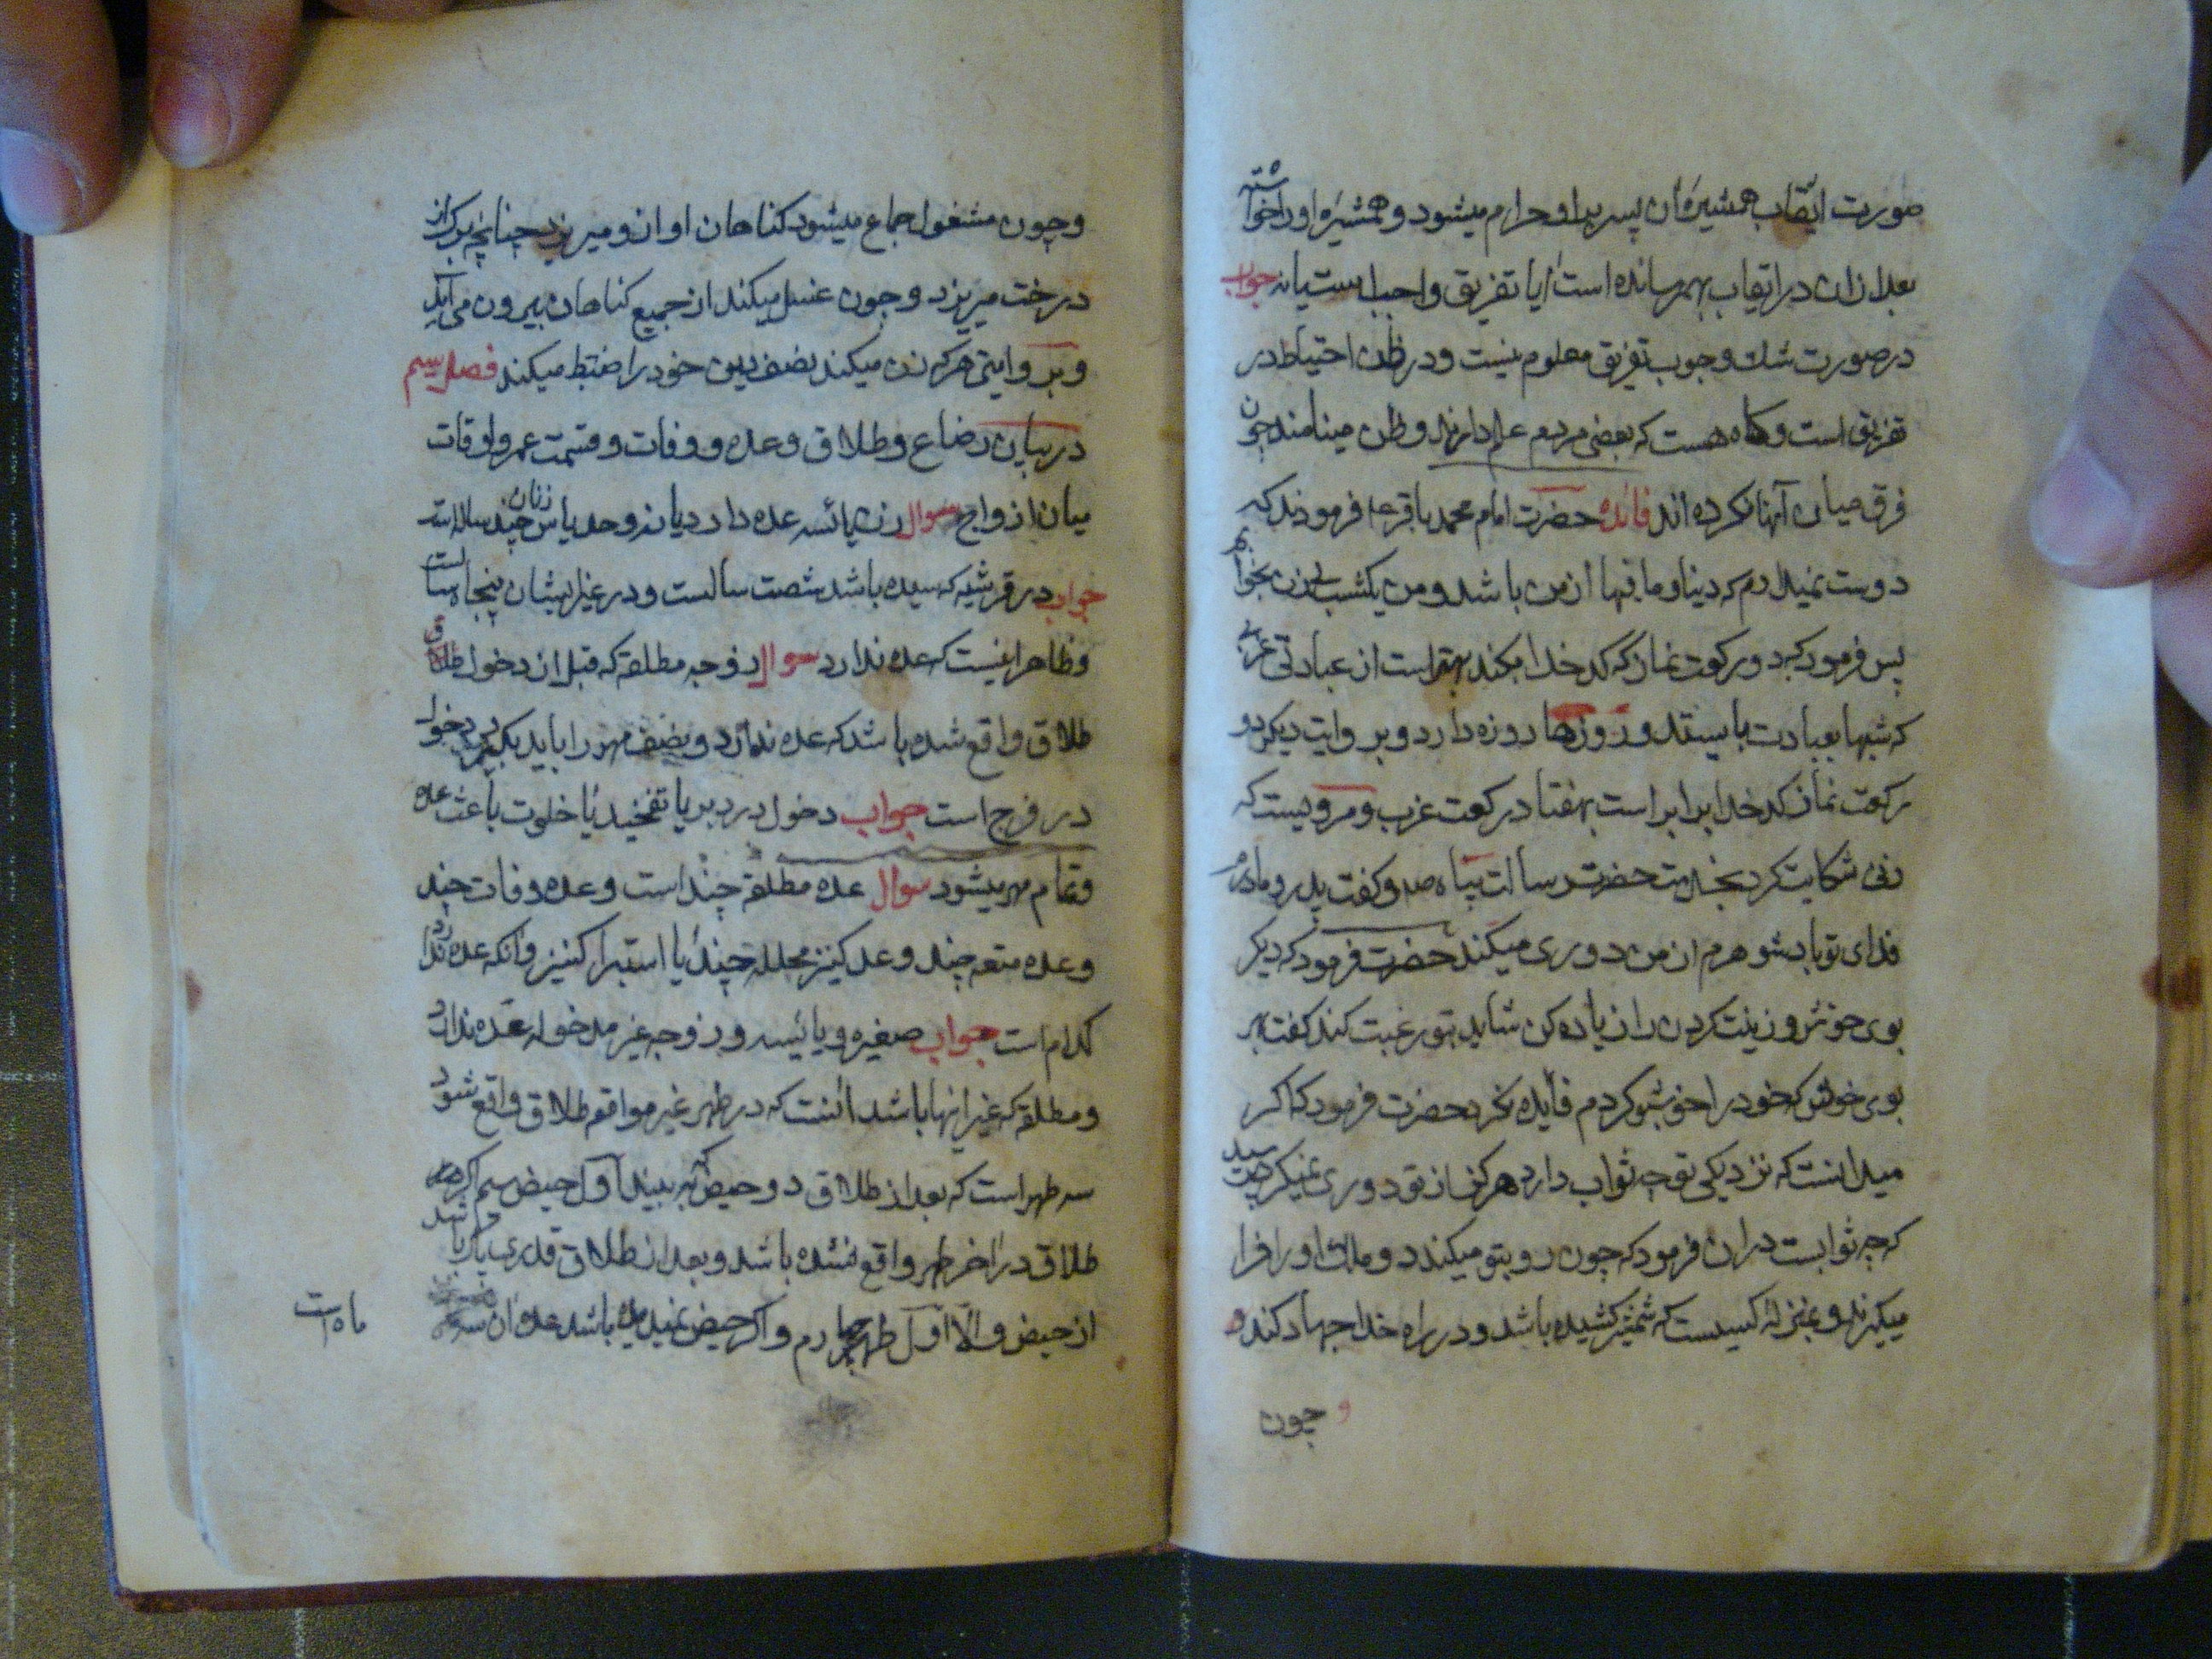 صورت ایقاب همشیره آن پسر براو حرام میشود و همشیره او را خواسته
بعد ازان در ایقاب بهم رسانده است ایا تفریق واجب است یا نه جواب
در صورت شك وجوب تفریق معلوم نیست و در ظن احتیاط در
تفریق است و كاه هست كه بعضی مردم علم دارند و ظن مینامند چون
فرق میان آنها نكرده اند فائده حضرت امام محمد باقر ع فرمودند كه
دوست نمیدارم كه دینا و ما فیها از من باشد و من یكشب بی زن بخوابم
پس فرمود كه دو ركعت نماز كه كدخدا مكند بهتر است از عبادتی عزبی
كه شبها بعبادت بایستد و روزها روزه دارد و بروایت دیكر دو
ركعت نماز كدخدا برابر است بهفتاد ركعت عزب و مرویست كه
زنی شكایت كرد بخدمت حضرت رسالت پناه ص و كفت پدر و مادرم
فدای تو باد شوهرم از من دوری میكند حضرت فرمود كه دیكر
بوی خوش و زینت كردن را زیاده كن شاید بتو رغبت كند كفت بهر
بوی خوش كه خود را خوشبو كردم فایده نكرد حضرت فرمود كه اكر
میدانست كه نزدیكی تو چه ثواب دارد هركز از تو دوری نمیكرد پرسید
كه چه ثوابست دران فرمود كه چون رو بتو میكند دو ملك او را فرا
میكیرند و بمنزله كسیست كه شمشیر كشیده باشد و در راه خدا جهاد كند و
و چون
و چون مشغول جماع میشود كناهان او ازو میریزد چنانچه برك از
درخت میریزد و چون غسل میكند از جمیع كناهان بیرون می آید
و بروایتی هركه زن میكند نصف دین خود را ضبط میكند فصل سیم
در بیان رضاع و طلاق و عده و وفات و قسمت عمر و اوقات
میان ازواج سوال زن یائسه عده دارد یا نه و حد یاس زنان چند سالست
جواب در قرشیه كه سیده باشد شصت سالست و در غیر ایشان پنجاه سالست
و ظاهرا نیست كه عده ندارد سوال زوجه مطلقه كه قبل از دخول طلاق
طلاق واقع شده باشد كه عده ندارد و نصف مهر را باید بكیرد دخول
در فرج است جواب دخول در دبر یا تفخیذ یا خلوت باعث عده
و تمام مهر میشود سوال عده مطلقه چند است و عده وفات چند
و عده متعه چند و عده كنیز محلله چند یا استبرا كنیز و انكه عده ندارد
كدام است جواب صغیره و یائیسه و زوجه غیر مدخوله عده ندارد
و مطلقه كه غیر اینها باشد انست كه در طهر غیر مواقع طلاق واقع شود
سه طهر است كه بعد از طلاق دو حیض كه ببیند اول حیض سیم اكر صیغه
طلاق در اخر طهر واقع نشده باشد و بعد از طلاق قدری پاك باشد
از حیض و الا اول طهر چهارم و اكر حیض نمیدیده باشد عده ان سه
ماه است